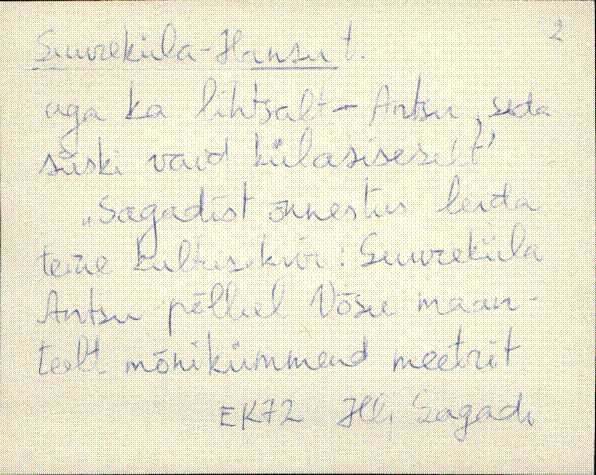 2
Suureküla-Hansu t.
aga ka lihtsalt – Antsu, seda
siiski vaid külasiseselt
"Sagadist õnnestus leida
teine kultusekivi: Suureküla
Antsu põllul Võsu maan-
teelt mõnikümmend meetrit
EK72 Hlj Sagadi